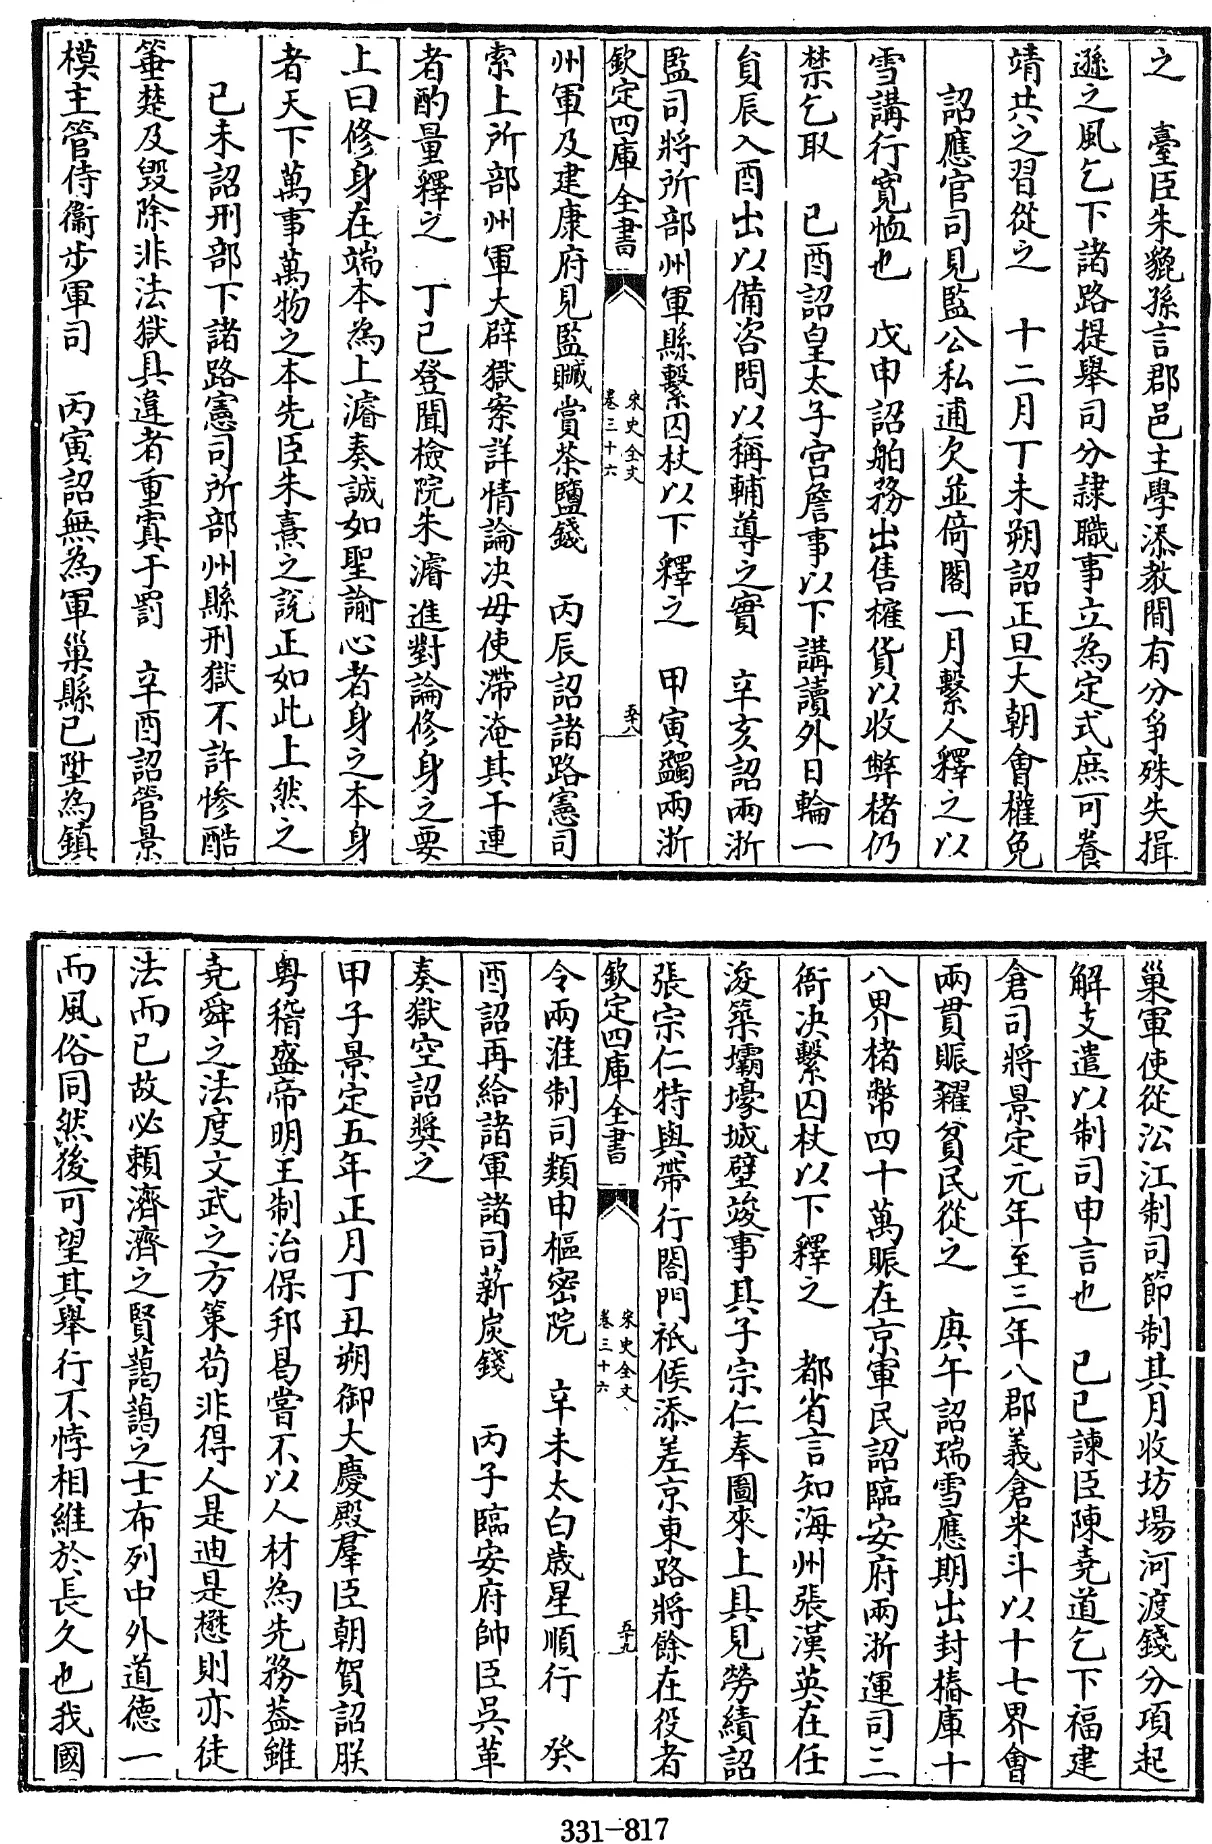 之　臺臣朱貔孫言郡邑主學添教間有分爭殊失揖
遜之風乞下諸路提舉司分隷職事立為定式庶可養
靖共之習從之　十二月丁未朔詔正旦大朝會權免
詔應官司見監公私逋欠並倚閣一月繫人釋之以
雪講行寛恤也　戊申詔舶務出售榷貨以收弊楮仍
禁乞取　己酉詔皇太子宫詹事以下講讀外日輪一
員辰入酉出以備咨問以稱輔導之實　辛亥詔兩浙
監司將所部州軍縣繫囚杖以下釋之　甲寅蠲兩浙
欽定四庫全書
宋史全文
卷三十六
五十八
州軍及建康府見監贓賞茶鹽錢　丙辰詔諸路憲司
索上所部州軍大辟獄案詳情論决毋使滯淹其干連
者酌量釋之　丁已登聞檢院朱濬進對論修身之要
上曰修身在端本為上濬奏誠如聖諭心者身之本身
者天下萬事萬物之本先臣朱熹之說正如此上然之
已未詔刑部下諸路憲司所部州縣刑獄不許慘酷
箠楚及毀除非法獄具違者重寘于罰　辛酉詔管景
模主管侍衞步軍司　丙寅詔無為軍巢縣已陞為鎮
巢軍使從沿江制司節制其月收坊場河渡錢分項起
解支遣以制司申言也　己巳諫臣陳堯道乞下福建
倉司將景定元年至三年八郡義倉米斗以十七界會
兩貫賑糶貧民從之　庚午詔瑞雪應期出封樁庫十
八界楮幣四十萬賑在京軍民詔臨安府兩浙運司三
衙決繫囚杖以下釋之　都省言知海州張漢英在任
浚築壩壕城壁竣事其子宗仁奉圖來上具見勞績詔
張宗仁特與帶行閤門祇候添差京東路將餘在役者
欽定四庫全書
宋史全文
卷三十六
五十九
令兩淮制司類申樞密院　辛未太白歲星順行　癸
酉詔再給諸軍諸司薪炭錢　丙子臨安府帥臣呉革
奏獄空詔奬之
甲子景定五年正月丁丑朔御大慶殿羣臣朝賀詔朕
粤稽盛帝明王制治保邦曷嘗不以人材為先務葢雖
堯舜之法度文武之方策苟非得人是迪是懋則亦徒
法而已故必頼濟濟之賢藹藹之士布列中外道德一
而風俗同然後可望其舉行不悖相維於長久也我國
331-817